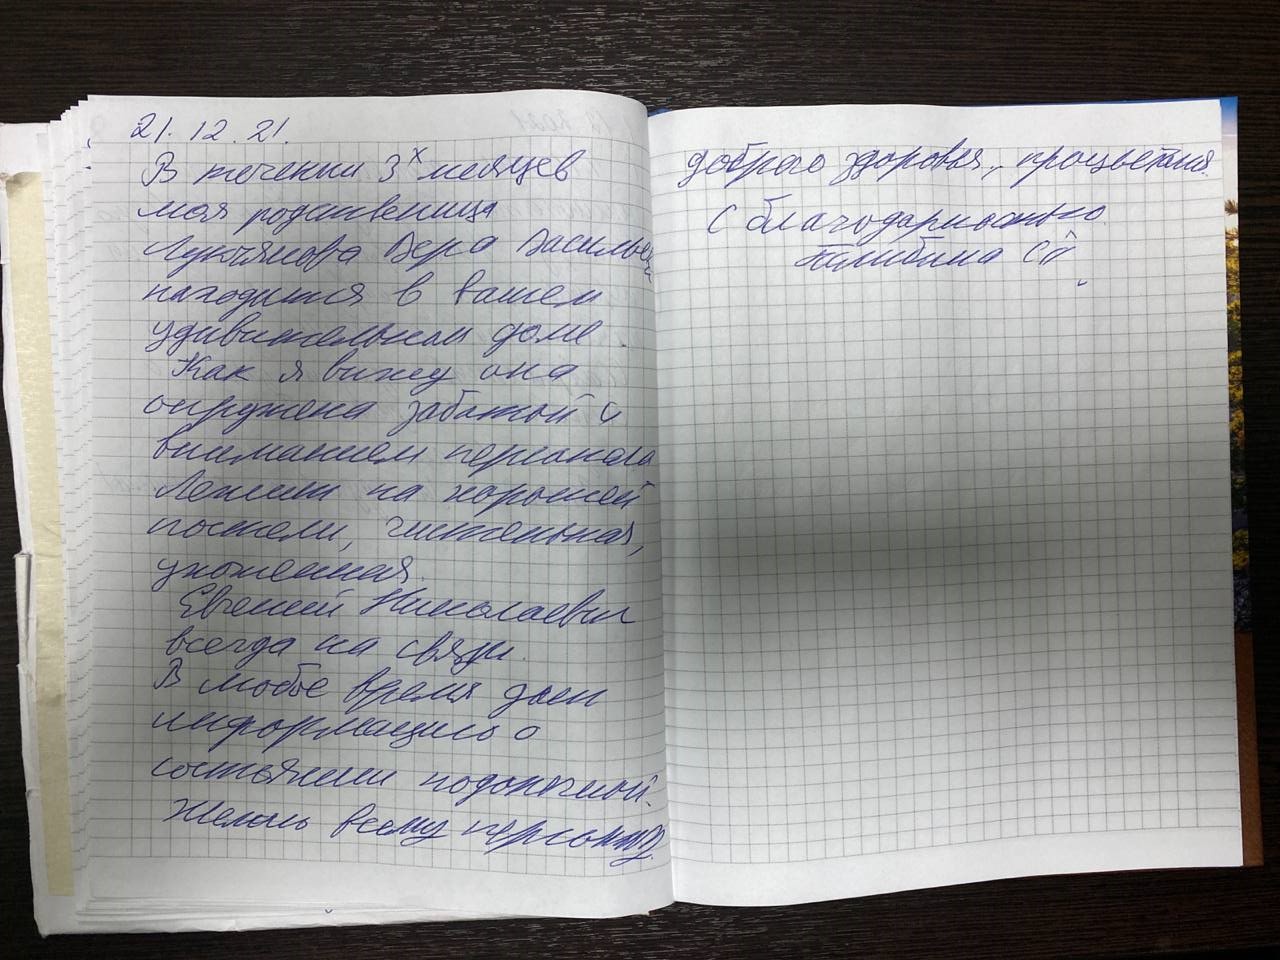 21.12.21.
В течении 3х месяцев
моя родственица
Лукьянова Вера Васильевна
находится в вашем
удивительном доме.
Как я вижу она
окружена заботой и
вниманием персонала
Лежит на хорошей
постели, чистенькая,
ухоженная.
Евгений Николаевич
всегда на связи.
В любое время дает
информацию о
состоянии подопечной.
Желаю всему персоналу
доброго здоровья, процветания.
С благодарностью